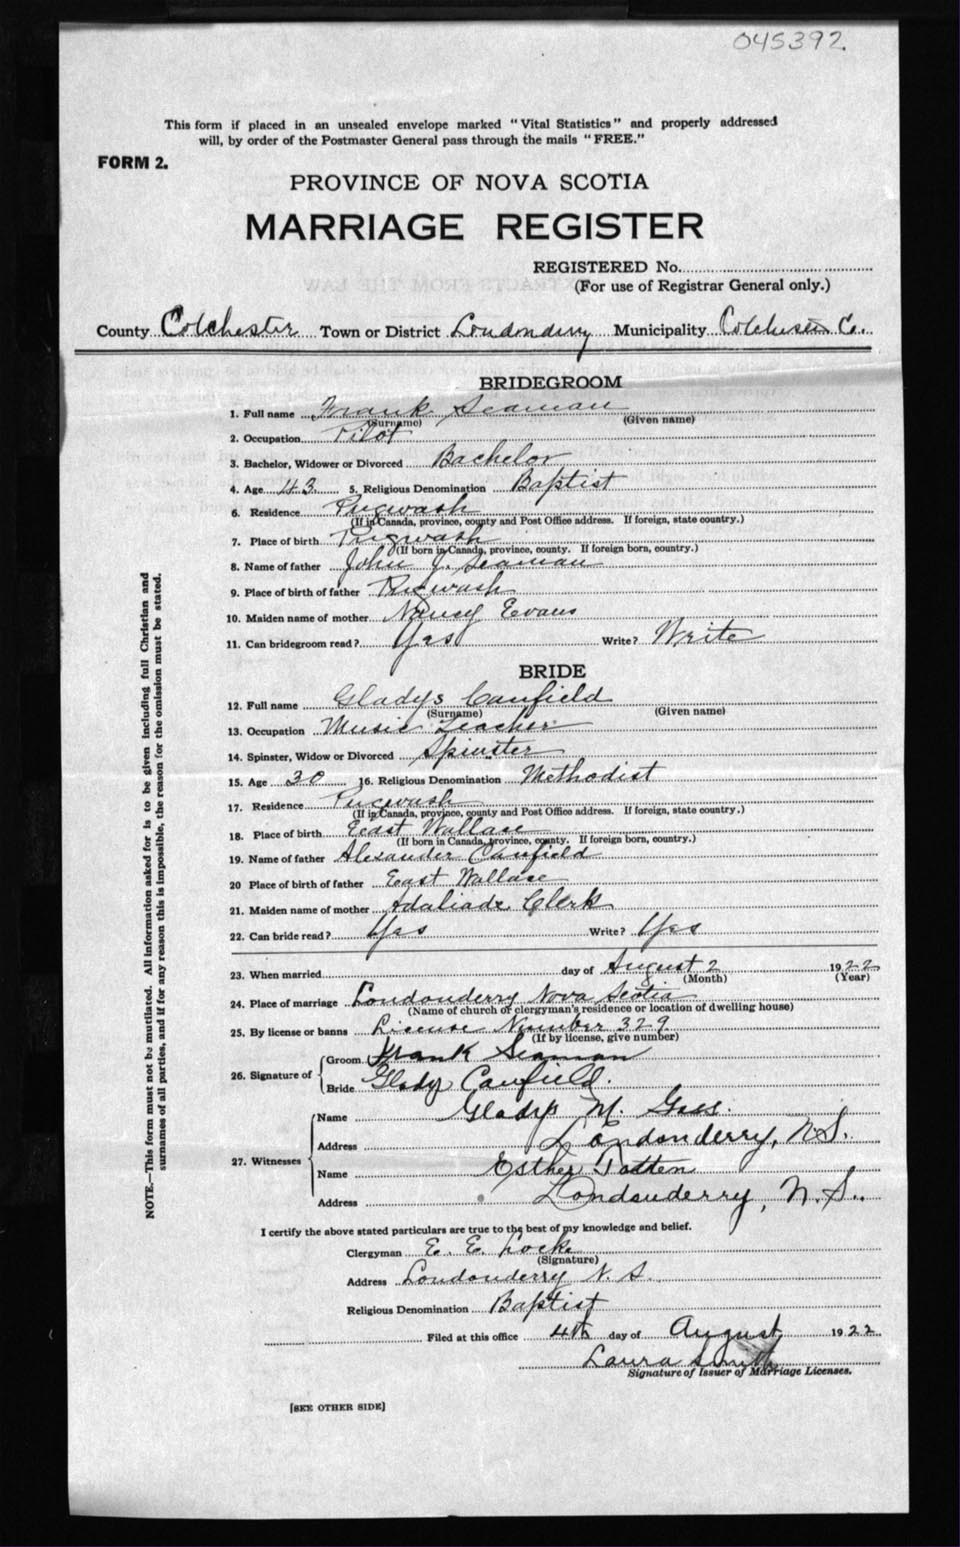 045392.
This form if placed in an unsealed envelope marked "Vital Statistics" and properly addressed
will, by order of the Postmaster General pass through the mails "FREE."
FORM 2.
PROVINCE OF NOVA SCOTIA
MARRIAGE REGISTER
REGISTERED No.
(For use of Registrar General only.)
County Colchester Town or District Londonderry Municipality Colchester Co.
BRIDEGROOM
1. Full name Frank Seaman
(Surname) (Given name)
2. Occupation Pilot
3. Bachelor, Widower or Divorced Bachelor
4. Age 43 5. Religious Denomination Baptist
6. Residence Pugwash
(If in Canada, province, county and Post Office address. If foreign, state country.)
7. Place of birth Pugwash
(If born in Canada, province, county. If foreign born, country.)
8. Name of father John J. Seaman
9. Place of birth of father Pugwash
10. Maiden name of mother Nancy Evans
11. Can bridegroom read? Yes Write? Write
BRIDE
12. Full name Gladys Canfield
(Surname) (Given name)
13. Occupation Music Teacher
14. Spinster, Widow or Divorced Spinster
15. Age 30 16. Religious Denomination Methodist
17. Residence Pugwash
(If in Canada, province, county and Post Office address. If foreign, state country.)
18. Place of birth East Wallace
(If born in Canada, province, county. If foreign born, country.)
19. Name of father Alexander Canfield
20 Place of birth of father East Wallace
21. Maiden name of mother Adaliade Clerk
22. Can bride read? Yes Write? Yes
23. When married day of August 2 1922
(Month) (Year)
24. Place of marriage Londonderry Nova Scotia
(Name of church or clergyman's residence or location of dwelling house)
25. By license or banns License Number 329
(If by license, give number)
26. Signature of Groom Frank Seaman
Bride Gladys Canfield.
27. Witnesses Name Gladys M. Gass.
Address Londonderry, N.S.
Name Esther Totten
Address Londonderry, N.S.
I certify the above stated particulars are true to the best of my knowledge and belief.
Clergyman E. E. Locke
(Signature)
Address Londonderry N. S.
Religious Denomination Baptist
Filed at this office 4th day of August 1922
Laura Smith
Signature of Issuer of Marriage Licenses.
[SEE OTHER SIDE]
NOTE.—This form must not be mutilated. All information asked for is to be given including full Christian and
surnames of all parties, and if for any reason this is impossible, the reason for the omission must be stated.